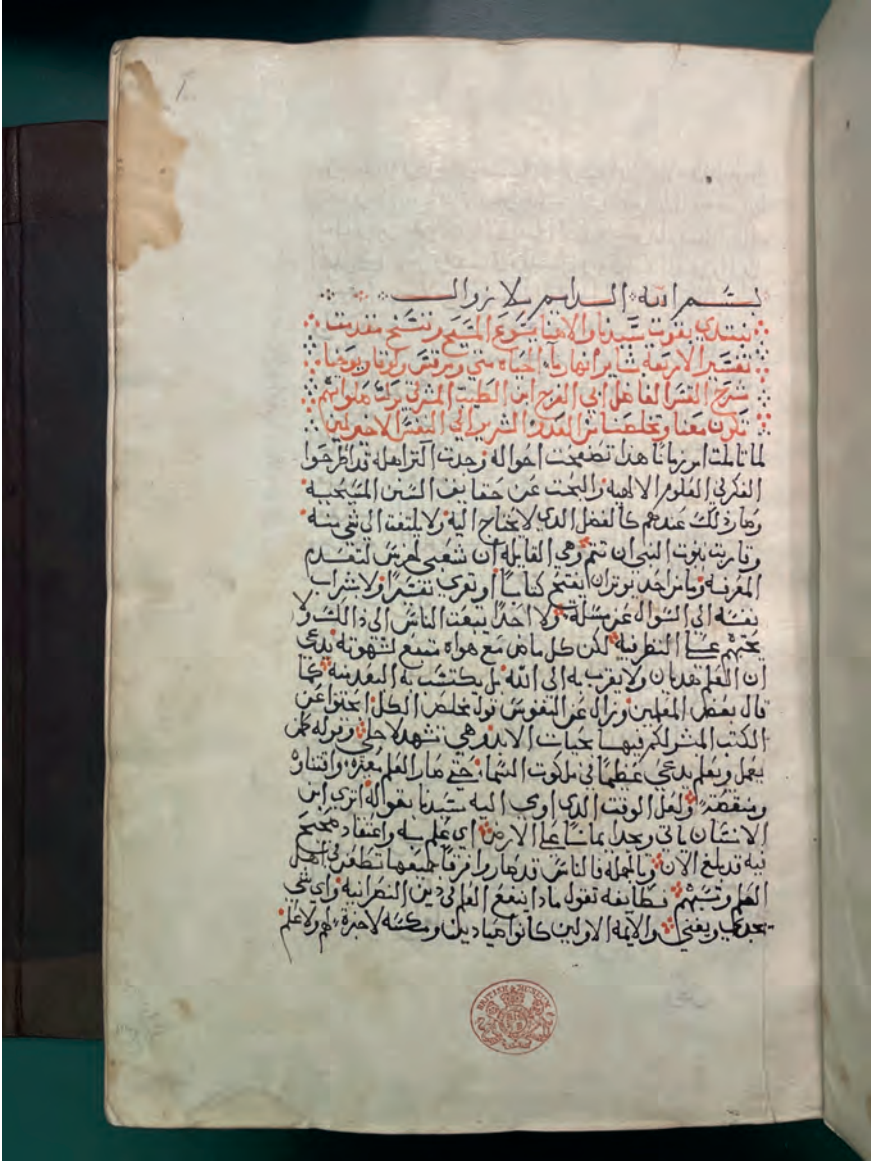 بسم الله الدايم بلا زوال
نبتدي بقوت سيدنا والاهنا يشوع المسيح وننسخ مقدمت
تفسير الاربعة شاير انهار ما الحياه متي ومرقس ولوقا ويوحنا
شرح القس الفاضل ابي الفرج ابن الطيب المشرقي بركت صلواتهم
تكون معنا وتخلصنا من العدو الشرير الي النفس الاخير امين
لما تاملت امر زماننا هذا تصفحت احواله وجدت اكثر اهله قد اطرحوا
الفكر في العلوم الالهية والبحث عن حقايق السنن المسيحية
وصار ذلك عندهم كالفضل الدي لا يحتاج اليه ولا يلتفت الي شي منه
وقاربت نبوت النبي ان تتم وهي القايله ان شعبي لعريس لتقدم
المعرفه وما من احد يوتر ان يفتح كتاباً او تعرب تفسيراً ولا شراب
نفسه الي السوال عن مسله ولا احداً يبعت الناس الي دالك ولا
يحتهم علي النظر فيه لكن كل ماض مع هواه متبع لشهوته يدعي
ان العلم هديان ولا يقرب به الي الله بل يكتسب به البعد منه كما
قال بعض المعلمين وزال عن النفوس قول مخلص الكل ابحتوا عن
الكتب المبشر لكم فيها بحيات الابد وهي تشهد لاجلي وقوله من
يعمل ويعلم يدعي عظيماً في ملكوت السما حتي صار العلم معيره واقتناه
ومنقصة ولعل الوقت الدي اومي اليه سيدنا بقواله اتري ابن
الانسان ياتي ويجد ايماناً علي الارض اي علم به واعتقاد صحيح
فيه قد بلغ الان وبالجمله فالناس قد صاروا افرقاً جميعها تطفر في اهل
العلم وتسبهم فطايفه تقول مادا ينفع العلم في دين النصرانيه واي شي
يجدي ويغني والايمه الاولين كانوا صيادين ومكسه لا خبرة لهم ولا علم
BRITISH MUSEUM